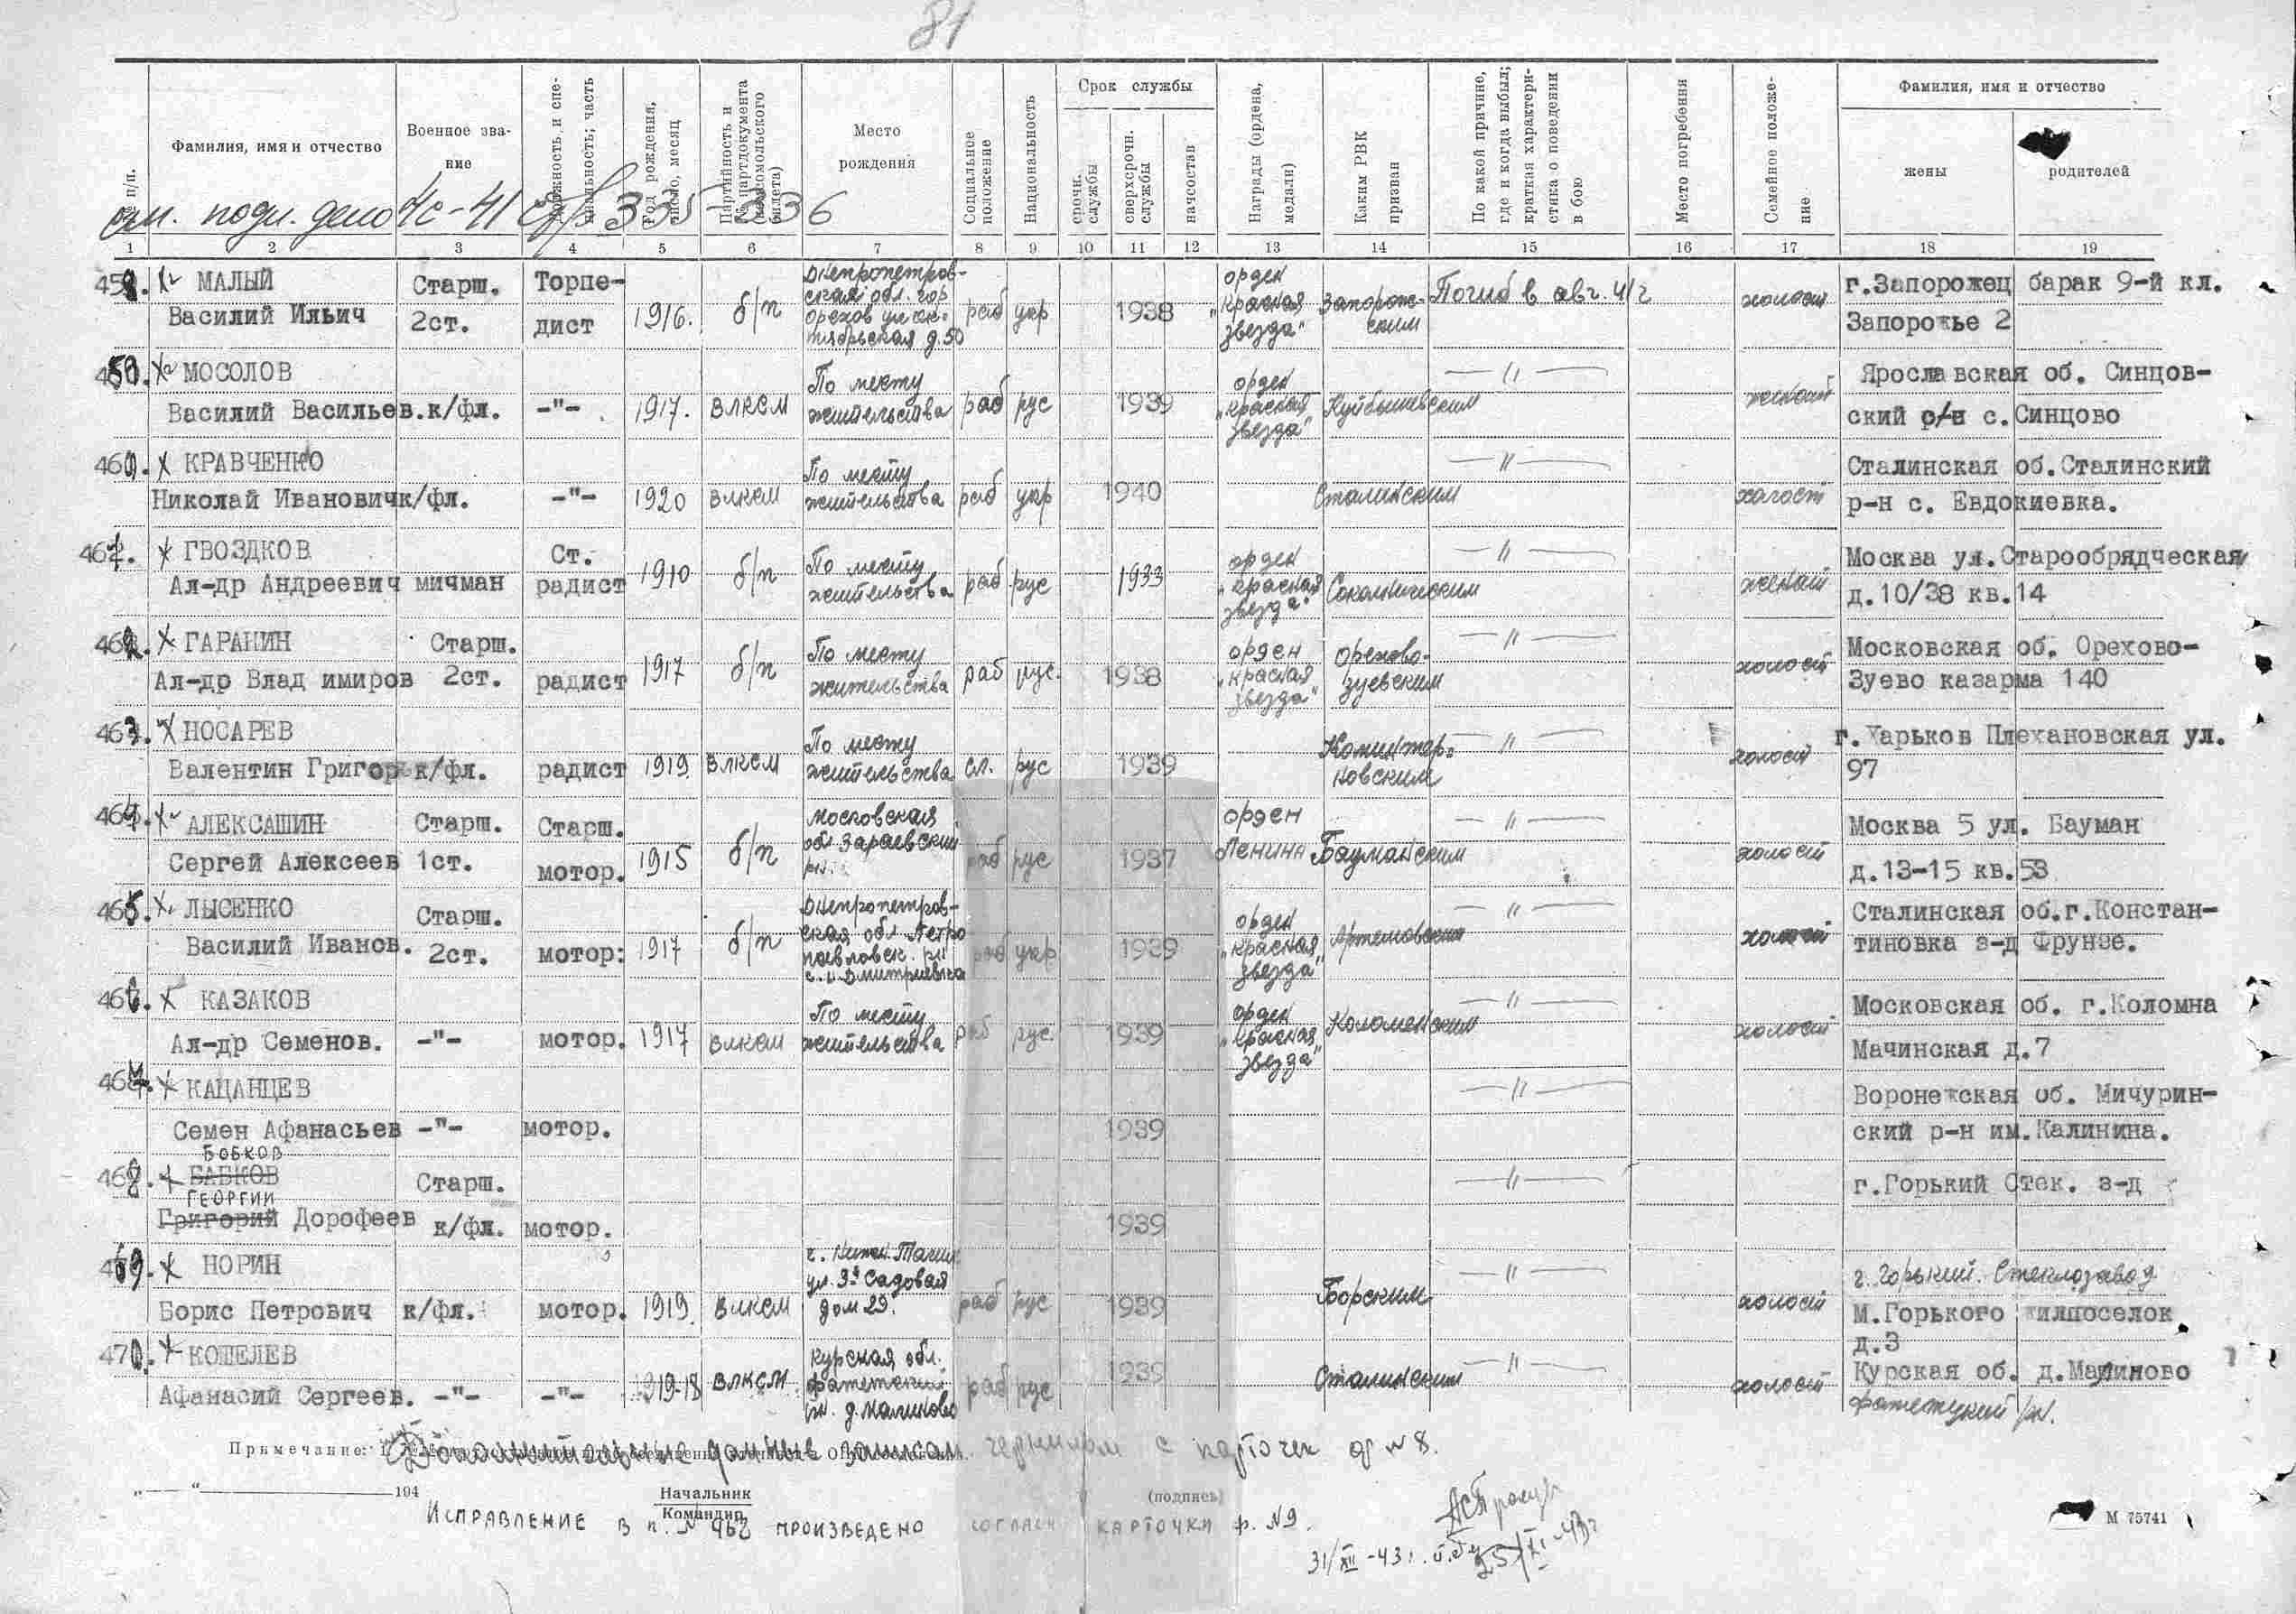 81
№ п/п.
Фамилия, имя и отчество
Военное зва-
ние
Должность и спе-
циальность; часть
Год рождения,
число, месяц
Партийность и
№ партдокумента
(комсомольского
билета)
Место
рождения
Социальное
положение
Национальность
Срок службы
срочн.
службы
сверхсрочн.
службы
начсостав
Награды (ордена,
медали)
Каким РВК
призван
По какой причине,
где и когда выбыл;
краткая характери-
стика о поведении
в бою
Место погребения
Семейное положе-
ние
Фамилия, имя и отчество
жены
родителей
см. подл. дело Чс-41 стр 335-336
1 2 3 4 5 6 7 8 9 10 11 12 13 14 15 16 17 18 19
МАЛЫЙ
Василий Ильич
Старш.
2ст.
Торпе-
дист
1916.
б/п
Днепропетров-
ская обл. гор
Орехов ул. Ок-
тябрьская д.50
раб укр 1938
орден
"Красная
звезда"
Запорож-
ским
Погиб в авг. 41г
холост
г.Запорожец барак 9-й кл.
Запорожье 2
МОСОЛОВ
Василий Васильев. к/фл. -"- 1917. ВЛКСМ
По месту
жительства
раб рус 1939
орден
"Красная
звезда"
Куйбышевским
—"—
женат
Ярославская об. Синцов-
ский р/н с.Синцово
КРАВЧЕНКО
Николай Иванович к/фл. -"- 1920 ВЛКСМ
По месту
жительства
раб укр 1940
Сталинским
—"—
холост
Сталинская об.Сталинский
р-н с. Евдокиевка.
ГВОЗДКОВ
Ал-др Андреевич мичман
Ст.
радист
1910 б/п
По месту
жительства
раб рус 1933
орден
"Красная
звезда"
Сокольническим
—"—
женат
Москва ул.Старообрядческая
д.10/38 кв.14
462. ГАРАНИН
Ал-др Владимиров
Старш.
2ст.
радист 1917 б/п
По месту
жительства
раб рус. 1938
орден
"Красная
звезда"
Орехово-
зуевским
—"—
холост
Московская об. Орехово-
Зуево казарма 140
463. НОСАРЕВ
Валентин Григор к/фл. радист 1919 ВЛКСМ
По месту
жительства
сл. рус 1939
Коминтер-
новским
—"—
холост
г.Харьков Плехановская ул.
97
464. АЛЕКСАШИН
Сергей Алексеев
Старш.
1ст.
Старш.
мотор.
1915 б/п
Московская
обл Зараевский
рн.
раб рус 1937
орден
Ленина
Бауманским
—"—
холост
Москва 5 ул. Бауман
д.13-15 кв.53
465. ЛЫСЕНКО
Василий Иванов.
Старш.
2ст.
мотор: 1917 б/п
Днепропетров-
ская обл Петро
павловск. рн
с. Дмитриевка
раб укр 1939
орден
"Красная
звезда"
Артемовским
—"—
холост
Сталинская об.г.Констан-
тиновка з-д Фрунзе.
466. КАЗАКОВ
Ал-др Семенов. -"- мотор. 1917 ВЛКСМ
По месту
жительства
раб рус. 1939
орден
"Красная
звезда"
Коломенским
—"—
холост
Московская об. г.Коломна
Мачинская д.7
КАЦАНЦЕВ
Семен Афанасьев -"- мотор. 1939
—"—
Воронежская об. Мичурин-
ский р-н им.Калинина.
БОБКОВ
468. БАБКОВ
ГЕОРГИЙ
Григорий Дорофеев
Старш.
к/фл. мотор. 1939
—"—
г.Горький Стек. з-д
469. НОРИН
Борис Петрович к/фл. мотор. 1919 ВЛКСМ
г. Нижн. Тагил
ул. 3я Садовая
дом 29.
раб рус 1939
Борским
—"—
холост
г. Горький. Стеклозавод
М.Горького жилпоселок
д.3
470. КОШЕЛЕВ
Афанасий Сергеев. -"- -"- 1919-18 ВЛКСМ
Курская обл.
Фатежский
рн. д. Малиново
раб рус 1939
Сталинским
—"—
холост
Курская об. д.Малиново
Фатежский рн.
Примечание: Дополнительные данные записал чернилом с карточек ф №8.
„—“ 194
Начальник
Командир
(подпись)
ИСПРАВЛЕНИЕ В п. №462 ПРОИЗВЕДЕНО СОГЛАСН КАРТОЧКИ Ф. №9.
31/XII-43г.
25/XI-43г
М 75741